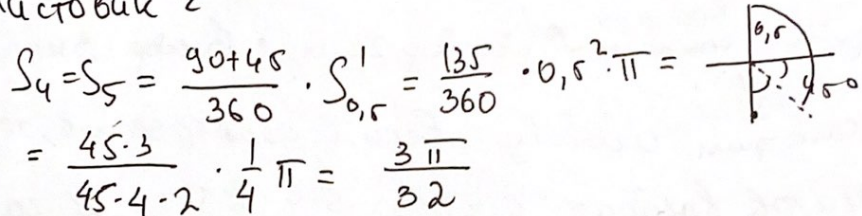 истовик 2
S₄ = S₅ = (90+45)/360 · S¹₀,₅ = 135/360 · 0,5² · π =
0,5
45°
= (45·3)/(45·4·2) · 1/4 π = 3π/32